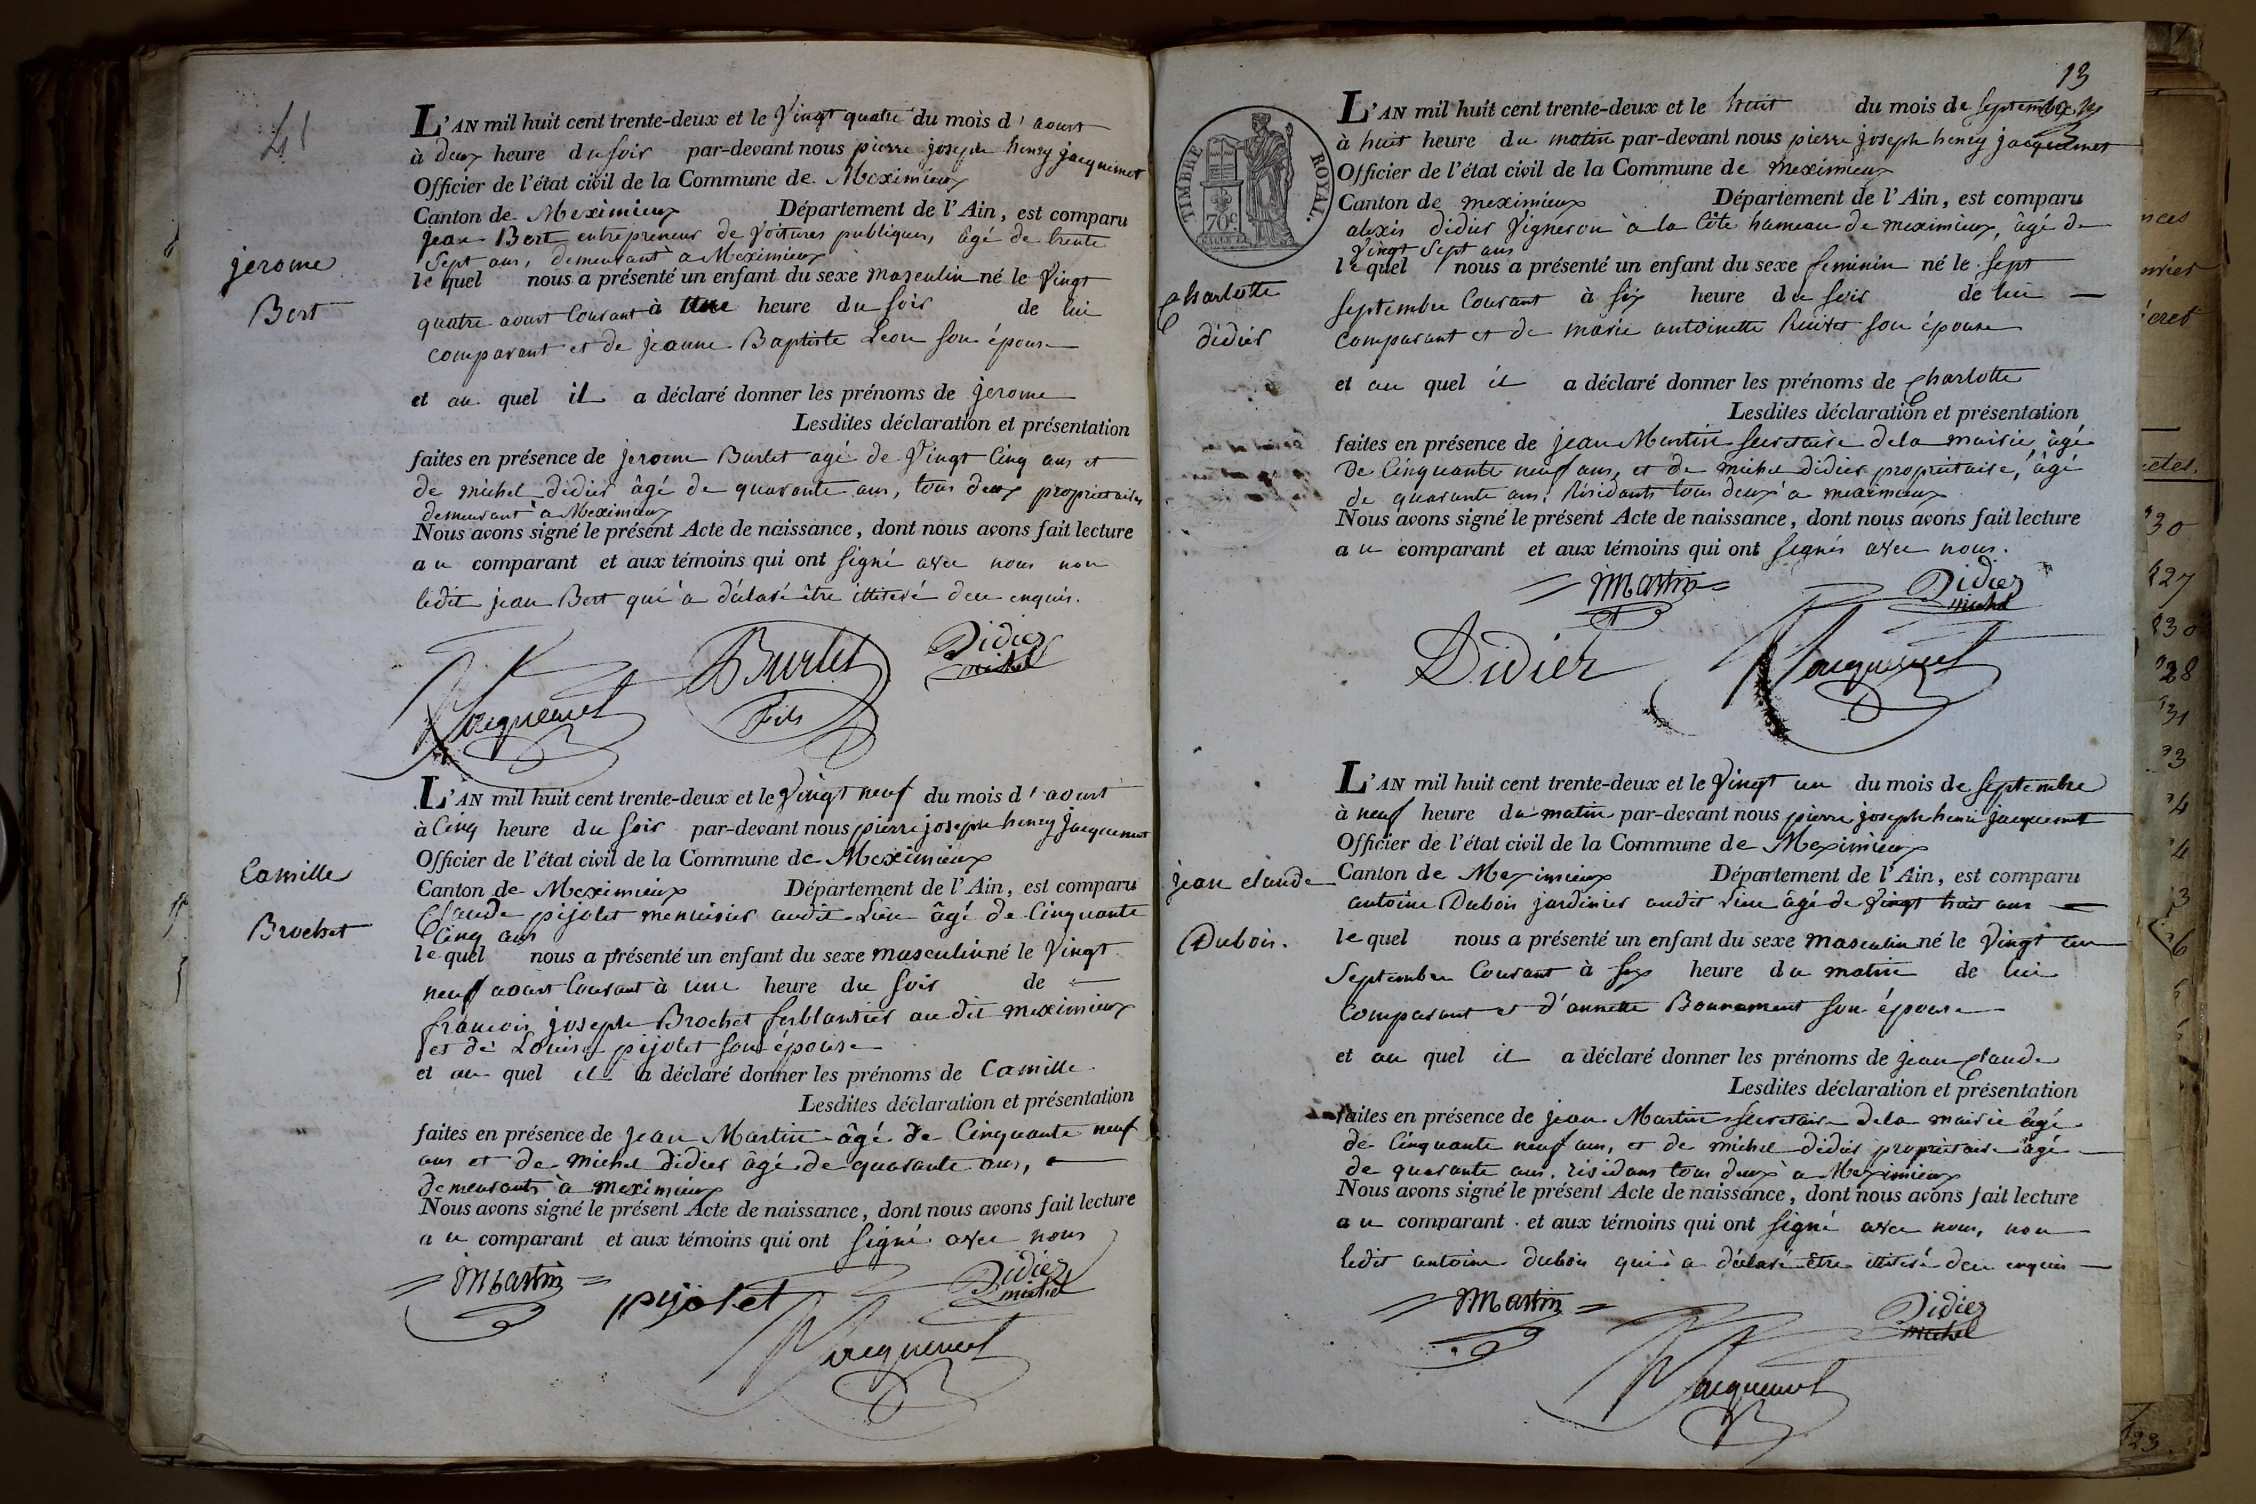 jerome
Bert
L'AN mil huit cent trente-deux et le Vingt quatre du mois d'aoust
à deux heure du soir par-devant nous pierre joseph henry jacquemet
Officier de l'état civil de la Commune de Meximieux
Canton de Meximieux Département de l'Ain, est comparu
jean Bert entrepreneur de Voitures publiques, âgé de trente
Sept ans, demeurant a Meximieux
le quel nous a présenté un enfant du sexe masculin né le Vingt
quatre aoust Courant à une heure du soir de lui
comparant et de jeanne Baptiste Leon son épouse
et au quel il a déclaré donner les prénoms de jerome
Lesdites déclaration et présentation
faites en présence de jerome Burlet agé de Vingt Cinq ans et
de michel didier âgé de quarante ans, tous deux proprietaires
demeurant a Meximieux
Nous avons signé le présent Acte de naissance, dont nous avons fait lecture
au comparant et aux témoins qui ont signé avec nous non
ledit jean Bert qui a déclaré être illiteré de ce enquis.
Jacquemet
Burlet
Fils
Didier
michel
Camille
Brochet
L'AN mil huit cent trente-deux et le Vingt neuf du mois d'aoust
à Cinq heure du soir par-devant nous pierre joseph henry jacquemet
Officier de l'état civil de la Commune de Meximieux
Canton de Meximieux Département de l'Ain, est comparu
Claude pijolet menuisier audit Lieu âgé de Cinquante
Cinq ans
le quel nous a présenté un enfant du sexe masculin né le Vingt
neuf aoust Courant à une heure du soir de
francois joseph Brochet ferblantier au dit meximieux
et de Louise pijolet son épouse
et au quel il a déclaré donner les prénoms de Camille
Lesdites déclaration et présentation
faites en présence de jean Martin âgé de Cinquante neuf
ans et de michel Didier âgé de quarante ans,
demeurants à meximieux
Nous avons signé le présent Acte de naissance, dont nous avons fait lecture
au comparant et aux témoins qui ont signé avec nous
Martin
pijolet
Didier
michel
Jacquemet
13
TIMBRE ROYAL.
70c.
Charlotte
didier
L'AN mil huit cent trente-deux et le huit du mois de Septembre
à huit heure du matin par-devant nous pierre joseph henry jacquemet
Officier de l'état civil de la Commune de meximieux
Canton de meximieux Département de l'Ain, est comparu
alexis didier Vigneron à la Côte hameau de meximieux, âgé de
Vingt Sept ans
le quel nous a présenté un enfant du sexe feminin né le sept
septembre Courant à six heure du soir de lui
comparant et de marie antoinette son épouse
et au quel il a déclaré donner les prénoms de Charlotte
Lesdites déclaration et présentation
faites en présence de jean Martin secretaire de la mairie âgé
De Cinquante neuf ans, et de michel didier proprietaire, âgé
de quarante ans, Résidants tous deux a meximieux
Nous avons signé le présent Acte de naissance, dont nous avons fait lecture
au comparant et aux témoins qui ont signés avec nous.
Martin
Didier
michel
Didier
Jacquemet
jean claude
Dubois.
L'AN mil huit cent trente-deux et le Vingt un du mois de Septembre
à neuf heure du matin par-devant nous pierre joseph henri jacquemet
Officier de l'état civil de la Commune de Meximieux
Canton de Meximieux Département de l'Ain, est comparu
antoine Dubois jardinier audit Lieu âgé de Vingt huit ans
le quel nous a présenté un enfant du sexe masculin né le Vingt un
Septembre Courant à six heure du matin de lui
comparant et d'annette Bonnament son épouse
et au quel il a déclaré donner les prénoms de jean Claude
Lesdites déclaration et présentation
faites en présence de jean Martin secretaire de la mairie âgé
de Cinquante neuf ans, et de michel didier proprietaire âgé
de quarante ans. résidans tous deux a Meximieux
Nous avons signé le présent Acte de naissance, dont nous avons fait lecture
au comparant et aux témoins qui ont signé avec nous, non
ledit antoine dubois qui a déclaré être illiteré de ce enquis
Martin
Didier
michel
Jacquemet